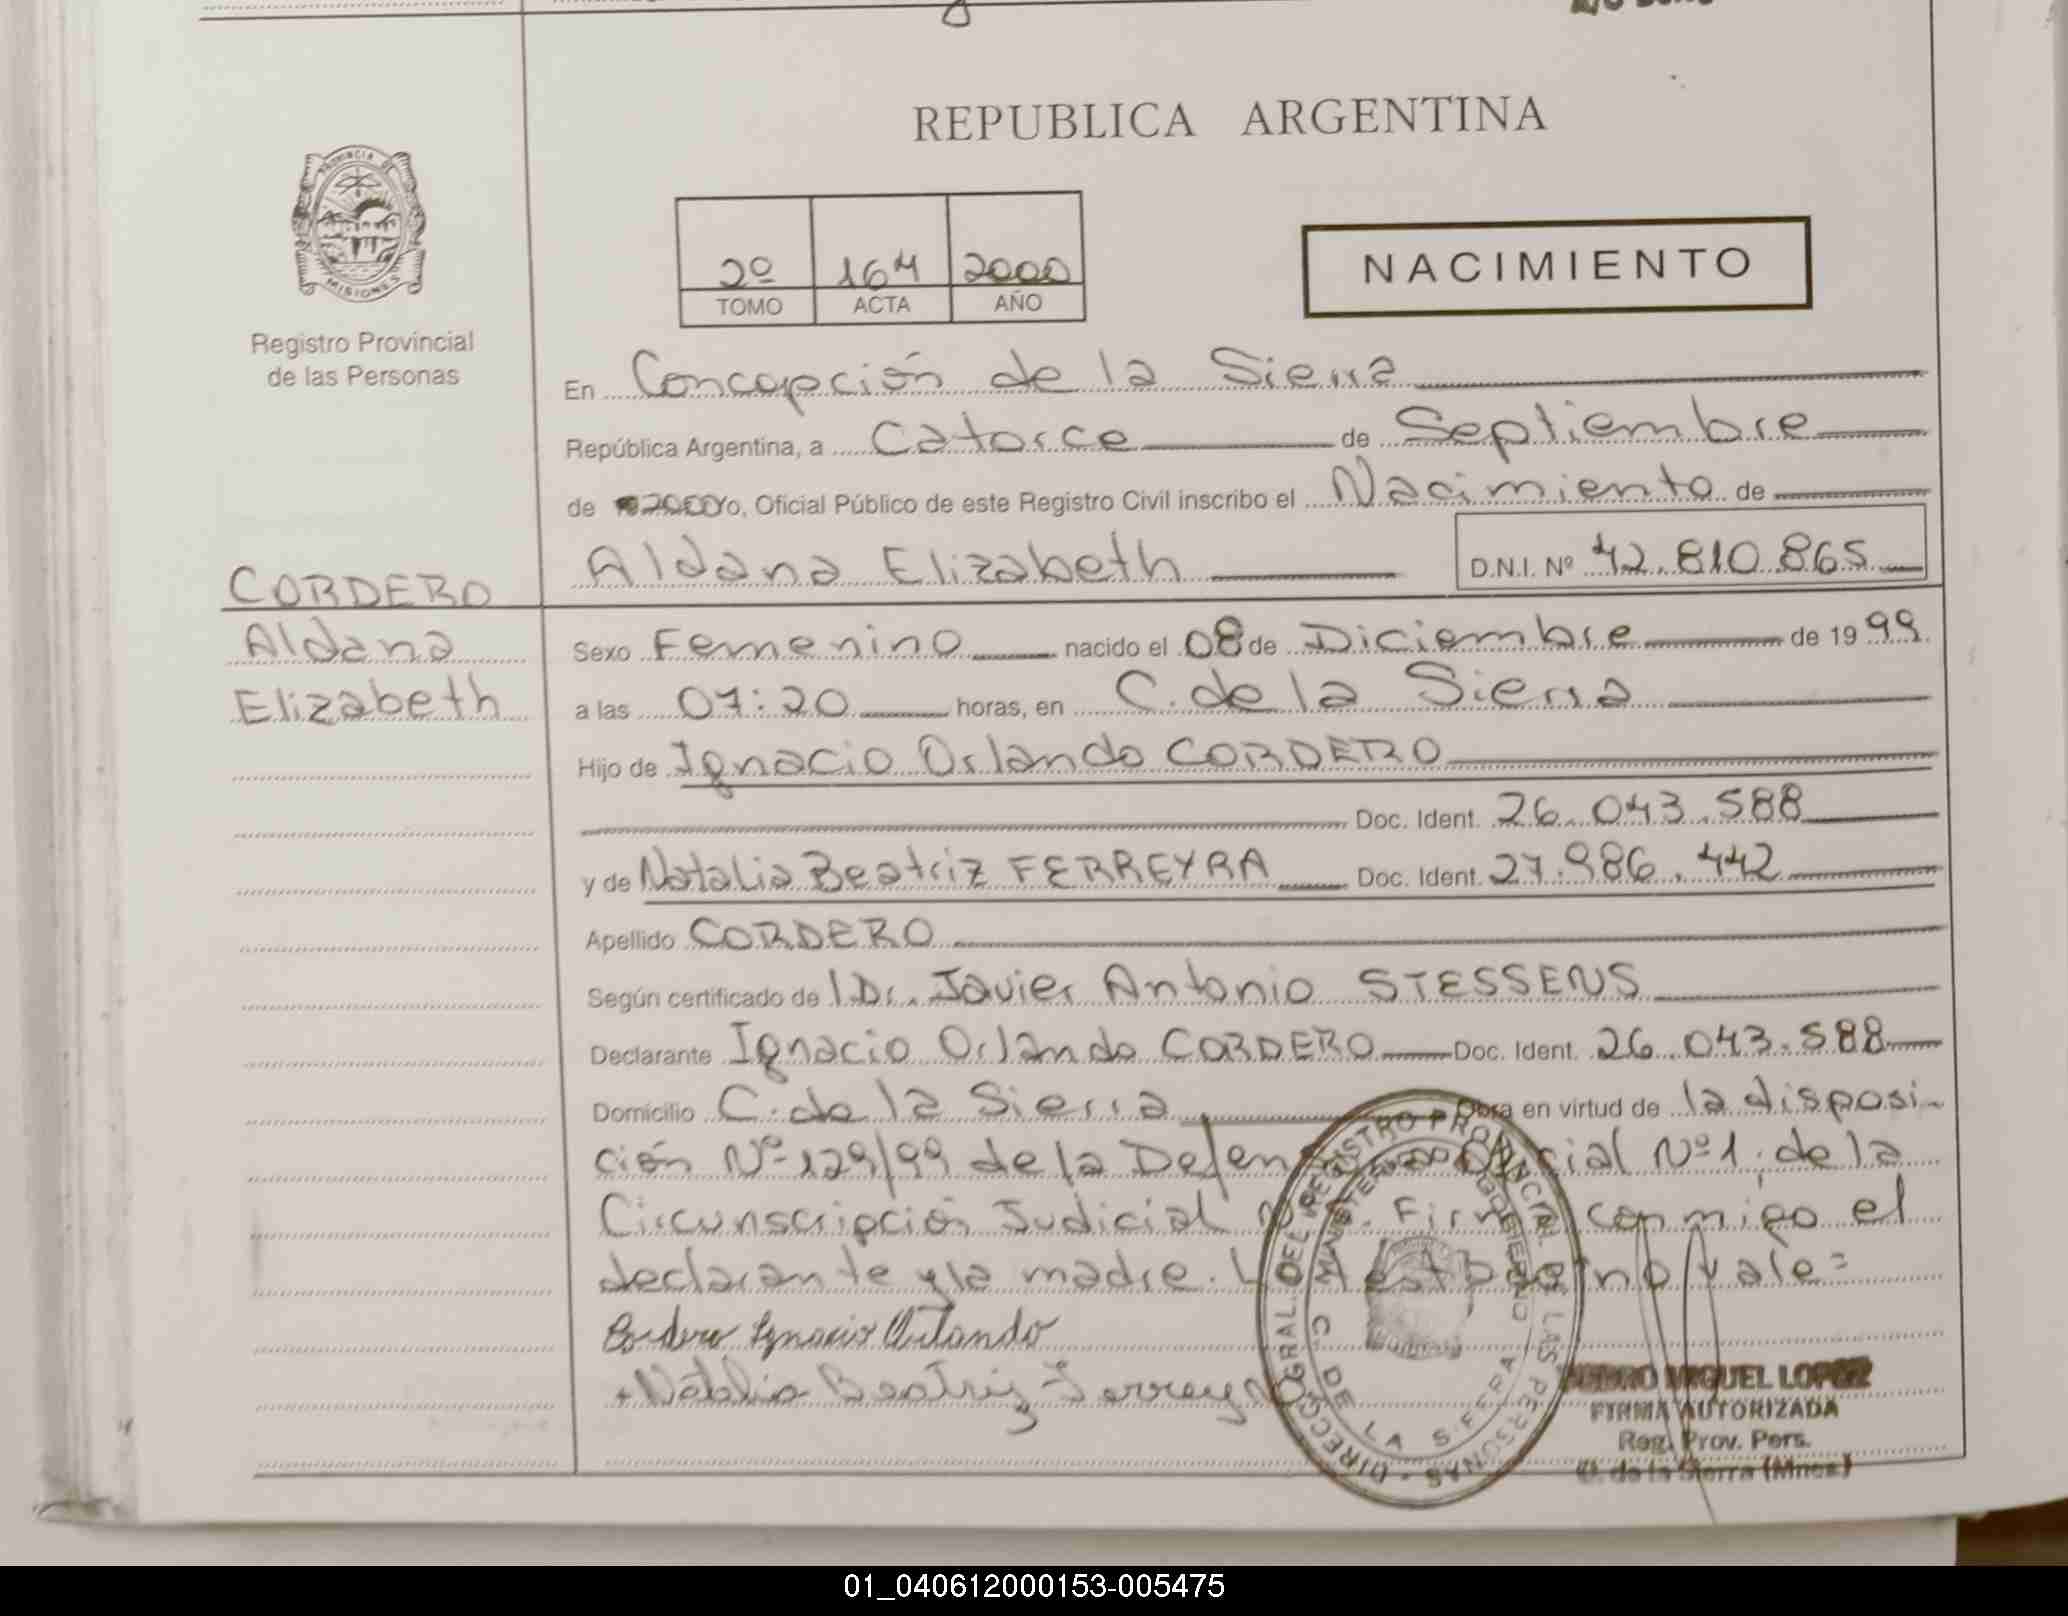 REPUBLICA ARGENTINA
PROVINCIA DE MISIONES
Registro Provincial
de las Personas
2º 164 2000
TOMO ACTA AÑO
NACIMIENTO
En Concepción de la Sierra
República Argentina, a Catorce de Septiembre
de 2000 yo, Oficial Público de este Registro Civil inscribo el Nacimiento de
Aldana Elizabeth D.N.I. Nº 42.810.865
CORDERO
Aldana
Elizabeth
Sexo Femenino nacido el 08 de Diciembre de 1999
a las 07:20 horas, en C. de la Sierra
Hijo de Ignacio Orlando CORDERO
Doc. Ident. 26.043.588
y de Natalia Beatriz FERREYRA Doc. Ident. 27.986.442
Apellido CORDERO
Según certificado de l Dr. Javier Antonio STESSENS
Declarante Ignacio Orlando CORDERO Doc. Ident. 26.043.588
Domicilio C. de la Sierra Obra en virtud de la disposi-
ción Nº 129/99 de la Oficial Nº 1, de la
Circunscripción Judicial Firma conmigo el
declarante y la madre. no vale=
Cordero Ignacio Orlando
Natalia Beatriz Ferreyra
DIRECC. GRAL. DEL REGISTRO PROVINCIAL DE LAS PERSONAS
MINISTERIO DE GOBIERNO
C. DE LA SIERRA
PEDRO MIGUEL LOPEZ
FIRMA AUTORIZADA
Reg. Prov. Pers.
C. de la Sierra (Mnes.)
01_040612000153-005475